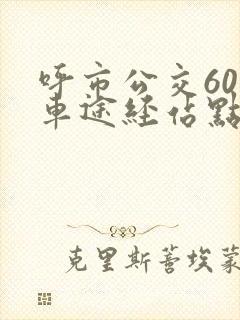 呼市公交60
車途經佔點
克里斯蒈埃蒙